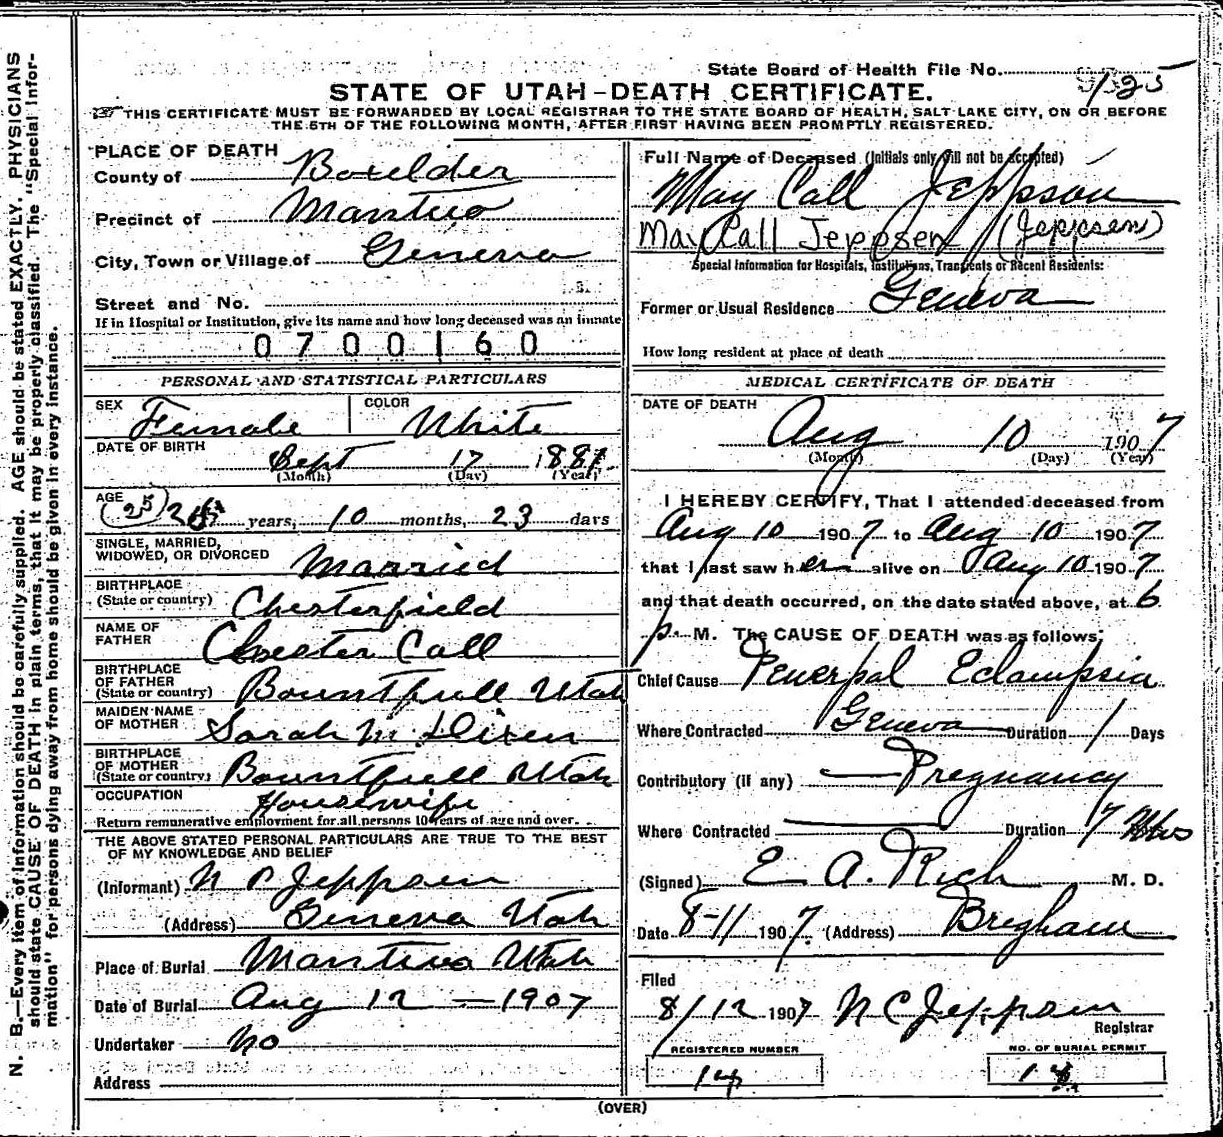 State Board of Health File No. 125
STATE OF UTAH-DEATH CERTIFICATE.
THIS CERTIFICATE MUST BE FORWARDED BY LOCAL REGISTRAR TO THE STATE BOARD OF HEALTH, SALT LAKE CITY, ON OR BEFORE
THE 5TH OF THE FOLLOWING MONTH, AFTER FIRST HAVING BEEN PROMPTLY REGISTERED.
N. B.—Every item of information should be carefully supplied. AGE should be stated EXACTLY. PHYSICIANS
should state CAUSE OF DEATH in plain terms, that it may be properly classified. The "Special Infor-
mation" for persons dying away from home should be given in every instance.
PLACE OF DEATH
County of Boxelder
Precinct of Mantua
City, Town or Village of Geneva
Street and No.
If in Hospital or Institution, give its name and how long deceased was an inmate
0700160
PERSONAL AND STATISTICAL PARTICULARS
SEX Female COLOR White
DATE OF BIRTH Sept 17 1881
(Month) (Day) (Year)
AGE (25) years, 10 months, 23 days
SINGLE, MARRIED,
WIDOWED, OR DIVORCED Married
BIRTHPLACE
(State or country) Chesterfield
NAME OF
FATHER Chester Call
BIRTHPLACE
OF FATHER
(State or country) Bountfull Utah
MAIDEN NAME
OF MOTHER Sarah M.
BIRTHPLACE
OF MOTHER
(State or country) Bountfull Utah
OCCUPATION Housewife
Return remunerative employment for all persons 10 years of age and over.
THE ABOVE STATED PERSONAL PARTICULARS ARE TRUE TO THE BEST
OF MY KNOWLEDGE AND BELIEF
(Informant) N C Jeppsen
(Address) Geneva Utah
Place of Burial Mantua Utah
Date of Burial Aug 12 — 1907
Undertaker no
Address
Full Name of Deceased (Initials only will not be accepted)
May Call Jeppson
May Call Jeppsen (Jeppsen)
Special Information for Hospitals, Institutions, Transients or Recent Residents:
Former or Usual Residence Geneva
How long resident at place of death
MEDICAL CERTIFICATE OF DEATH
DATE OF DEATH
Aug 10 1907
(Month) (Day) (Year)
I HEREBY CERTIFY, That I attended deceased from
Aug 10 1907 to Aug 10 1907
that I last saw her alive on Aug 10 1907
and that death occurred, on the date stated above, at 6
p. M. The CAUSE OF DEATH was as follows:
Chief Cause Puerpal Eclampsia
Where Contracted Geneva Duration 1 Days
Contributory (if any) Pregnancy
Where Contracted Duration 7 Mos
(Signed) E. A. Rich M. D.
Date 8-11 1907. (Address) Brigham
Filed
8/12 1907 N C Jeppsen
Registrar
REGISTERED NUMBER
14
NO. OF BURIAL PERMIT
14
(OVER)